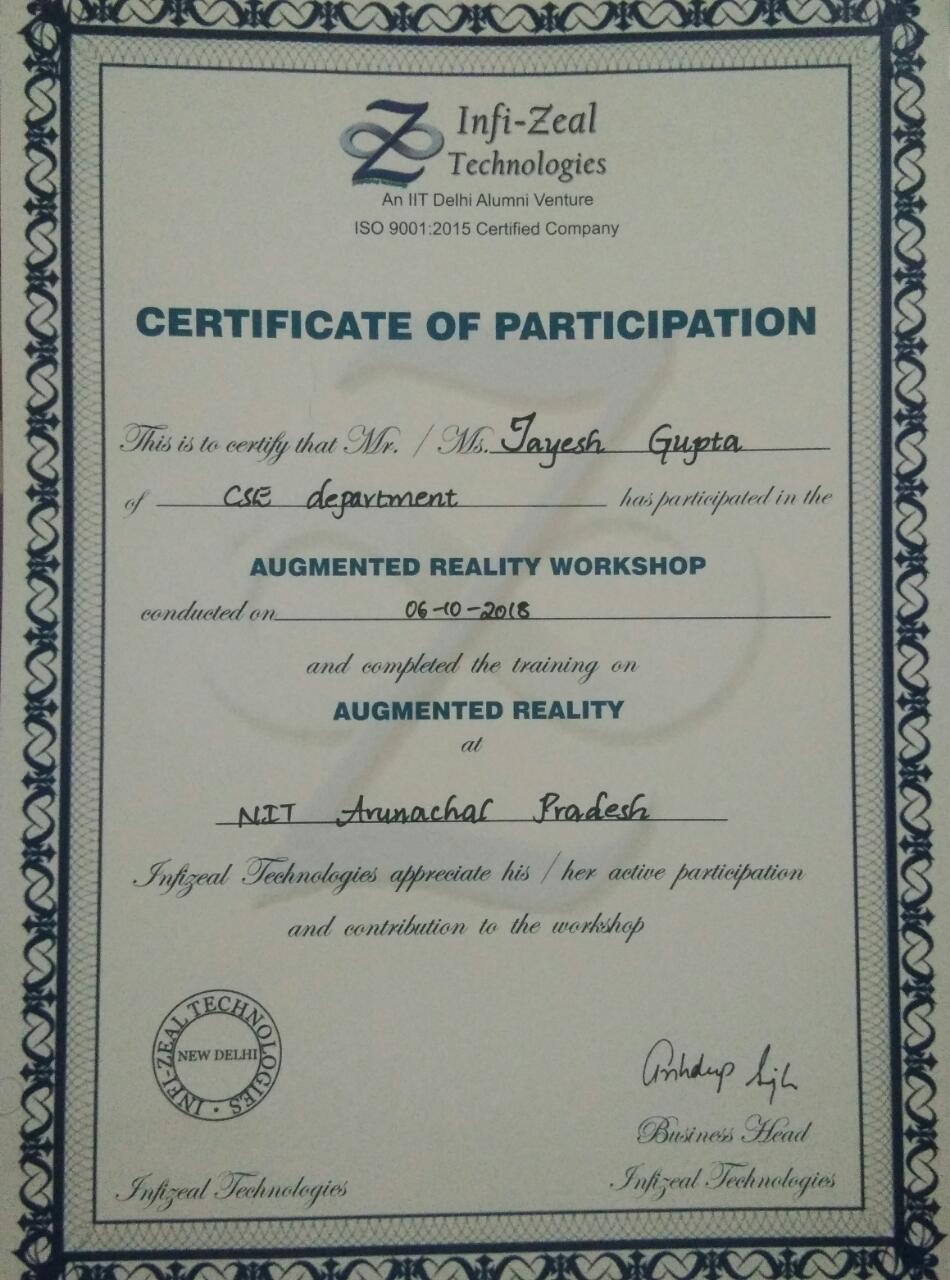 Infi-Zeal
Technologies
An IIT Delhi Alumni Venture
ISO 9001:2015 Certified Company
CERTIFICATE OF PARTICIPATION
This is to certify that Mr. / Ms. Jayesh Gupta
of CSE department has participated in the
AUGMENTED REALITY WORKSHOP
conducted on 06-10-2018
and completed the training on
AUGMENTED REALITY
at
NIT Arunachal Pradesh
Infizeal Technologies appreciate his / her active participation
and contribution to the workshop
INFI-ZEAL TECHNOLOGIES
NEW DELHI
Business Head
Infizeal Technologies
Infizeal Technologies